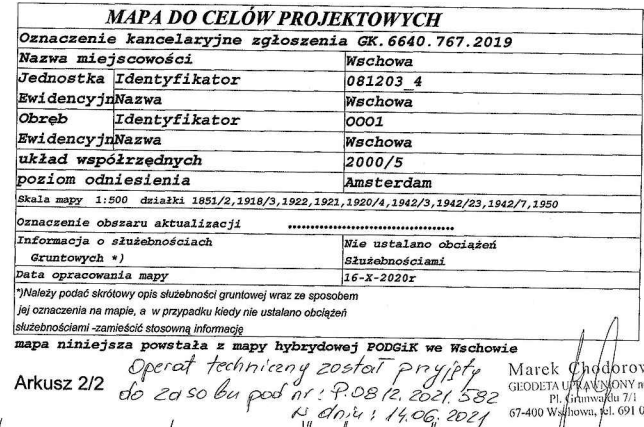 MAPA DO CELÓW PROJEKTOWYCH
Oznaczenie kancelaryjne zgłoszenia GK.6640.767.2019
Nazwa miejscowości Wschowa
Jednostka Identyfikator 081203_4
Ewidencyjn Nazwa Wschowa
Obręb Identyfikator 0001
Ewidencyjn Nazwa Wschowa
układ współrzędnych 2000/5
poziom odniesienia Amsterdam
Skala mapy 1:500 działki 1851/2,1918/3,1922,1921,1920/4,1942/3,1942/23,1942/7,1950
Oznaczenie obszaru aktualizacji ....................................
Informacja o służebnościach Nie ustalano obciążeń
Gruntowych *) Służebnościami
Data opracowania mapy 16-X-2020r
*)Należy podać skrótowy opis służebności gruntowej wraz ze sposobem
jej oznaczenia na mapie, a w przypadku kiedy nie ustalano obciążeń
służebnościami -zamieścić stosowną informację
mapa niniejsza powstała z mapy hybrydowej PODGiK we Wschowie
Operat techniczny został przyjęty
Arkusz 2/2 do zasobu pod nr: P.0812.2021.582
w dniu: 14.06.2021
Marek Chodorow
GEODETA UPRAWNIONY n
Pl. Grunwaldu 7/1
67-400 Wschowa, tel. 691 0